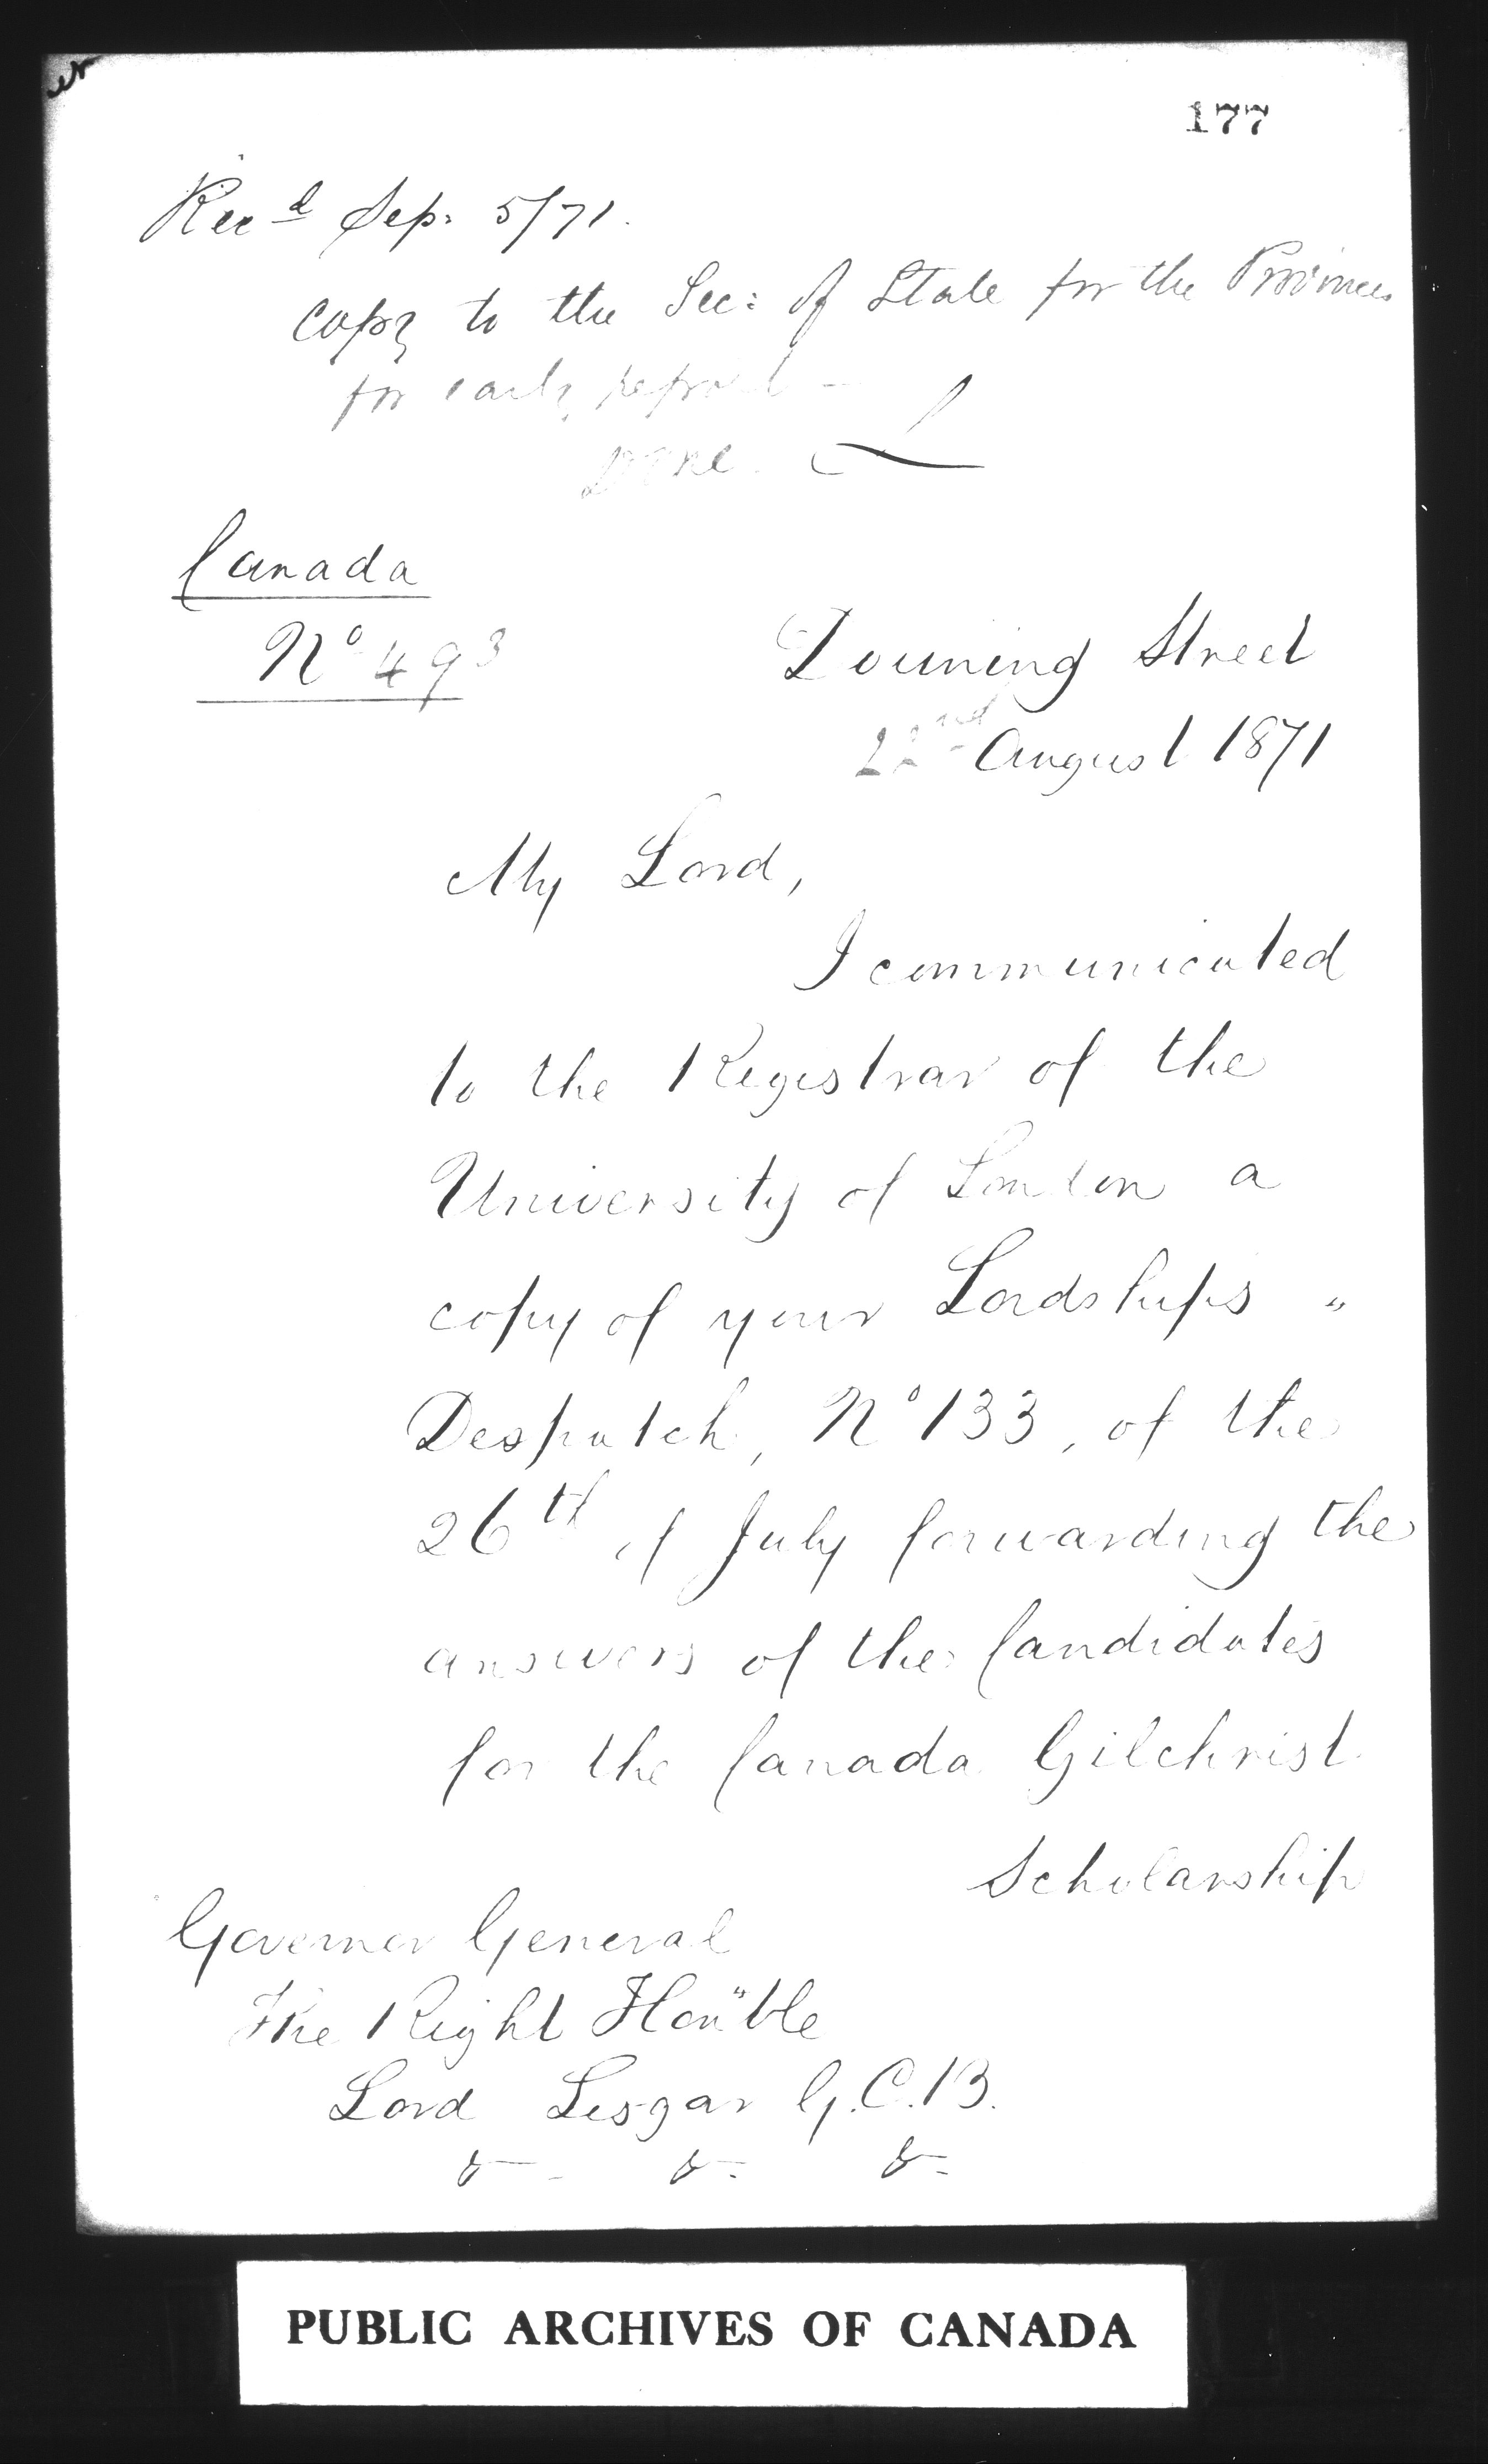 177
Recd Sep: 5/71.
Copy to the Sec: of State for the Provinces
for early report —
Done. L
Canada
No 493
Downing Street
22nd August 1871
My Lord,
I communicated
to the Registrar of the
University of London a
copy of your Lordships "
Despatch, No 133, of the
26th of July forwarding the
answers of the Candidates
for the Canada Gilchrist
Scholarship
Governor General
The Right Hon"ble
Lord Lisgar G.C.B.
&c. &c. &c.
PUBLIC ARCHIVES OF CANADA